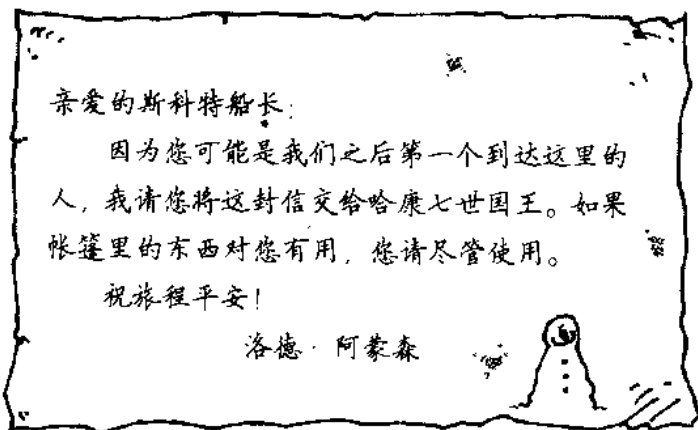 亲爱的斯科特船长：
因为您可能是我们之后第一个到达这里的
人，我请您将这封信交给哈康七世国王。如果
帐篷里的东西对您有用，您请尽管使用。
祝旅程平安！
洛德·阿蒙森